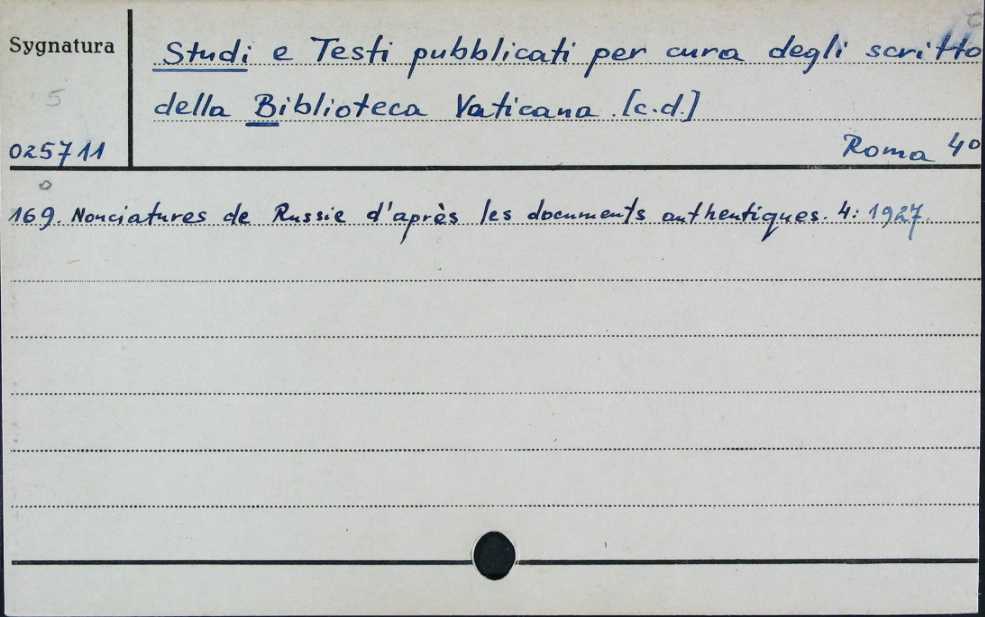 Sygnatura
Studi e Testi pubblicati per cura degli scritto
5
della Biblioteca Vaticana. [c.d.]
025711
Roma 4o
169. Nonciatures de Russie d'après les documents authentiques. 4: 1927.